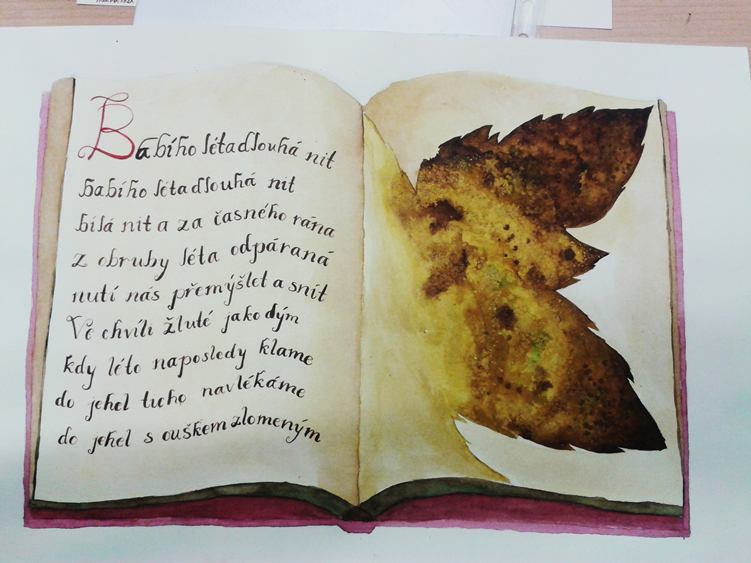 Babího léta dlouhá nit
babího léta dlouhá nit
bílá nit a za časného rána
z obruby léta odpáraná
nutí nás přemýšlet a snít
Ve chvíli žluté jako dým
kdy léto naposledy klame
do jehel ticho navlékáme
do jehel s ouškem zlomeným